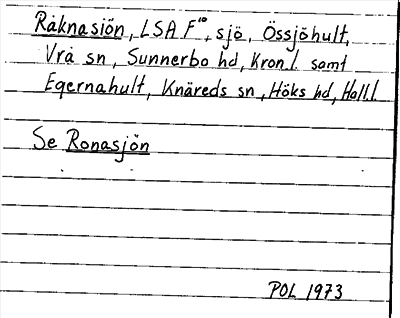 Råknasjön, LSA F¹⁰, sjö, Össjöhult,
Vrå sn, Sunnerbo hd, Kron.l. samt
Egernahult, Knäreds sn, Höks hd, Hall.l.
Se Ronasjön
POL 1973